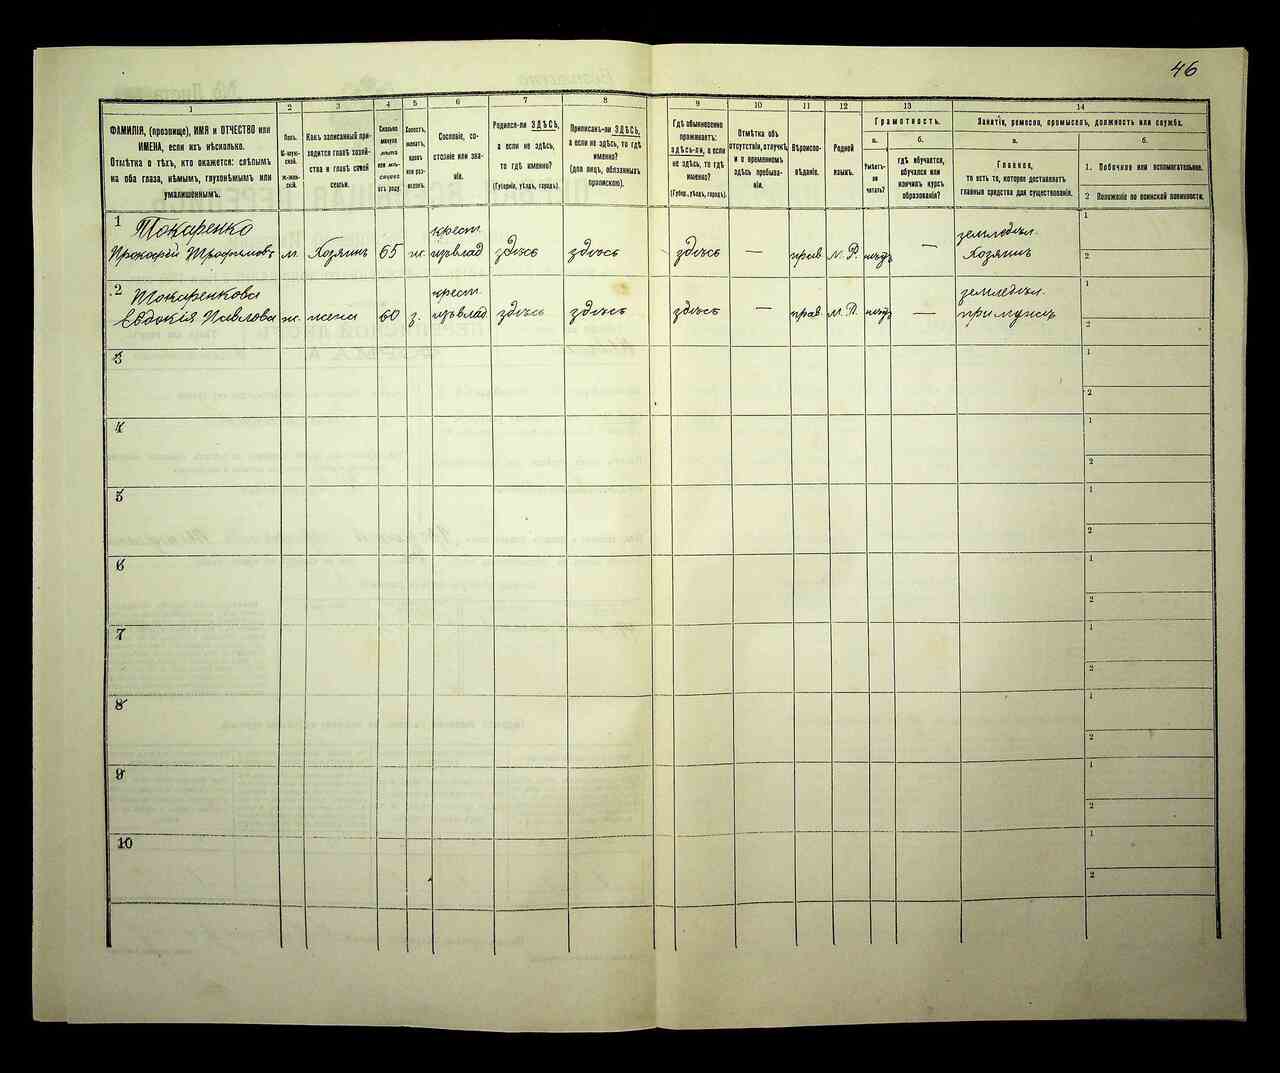 46
1
2
3
4
5
6
7
8
9
10
11
12
13
14
ФАМИЛІЯ, (прозвище), ИМЯ и ОТЧЕСТВО или
ИМЕНА, если ихъ нѣсколько.
Отмѣтка о тѣхъ, кто окажется: слѣпымъ
на оба глаза, нѣмымъ, глухонѣмымъ или
умалишеннымъ.
Полъ.
М-муж-
ской.
Ж-жен-
скій.
Какъ записанный при-
ходится главѣ хозяй-
ства и главѣ своей
семьи.
Сколько
минуло
лѣтъ
или мѣ-
сяцевъ
отъ роду.
Холостъ,
женатъ,
вдовъ
или раз-
веденъ.
Сословіе, со-
стояніе или зва-
ніе.
Родился-ли ЗДѢСЬ,
а если не здѣсь,
то гдѣ именно?
(Губернія, уѣздъ, городъ).
Приписанъ-ли ЗДѢСЬ,
а если не здѣсь, то гдѣ
именно?
(для лицъ, обязанныхъ
припискою).
Гдѣ обыкновенно
проживаетъ:
здѣсь-ли, а если
не здѣсь, то гдѣ
именно?
(Губер., уѣздъ, городъ).
Отмѣтка объ
отсутствіи, отлучкѣ
и о временномъ
здѣсь пребыва-
ніи.
Вѣроиспо-
вѣданіе.
Родной
языкъ.
Грамотность.
а.
Умѣетъ-
ли
читать?
б.
гдѣ обучается,
обучался или
кончилъ курсъ
образованія?
Занятіе, ремесло, промыселъ, должность или служба.
а.
Главное,
то есть то, которое доставляетъ
главныя средства для существованія.
б.
1. Побочное или вспомогательное.
2 Положеніе по воинской повинности.
1 Токаренко
Прокофій Трофимовъ м. Хозяинъ 65 ж. крест. здѣсь здѣсь здѣсь — прав М. Р. — земледѣл. Хозяинъ
1
2
2 Токаренкова
Евдокія Павлова ж. жена 60 з. крест. здѣсь здѣсь здѣсь — прав М. Р. — земледѣл. при мужѣ
1
2
3
1
2
4
1
2
5
1
2
6
1
2
7
1
2
8
1
2
9
1
2
10
1
2